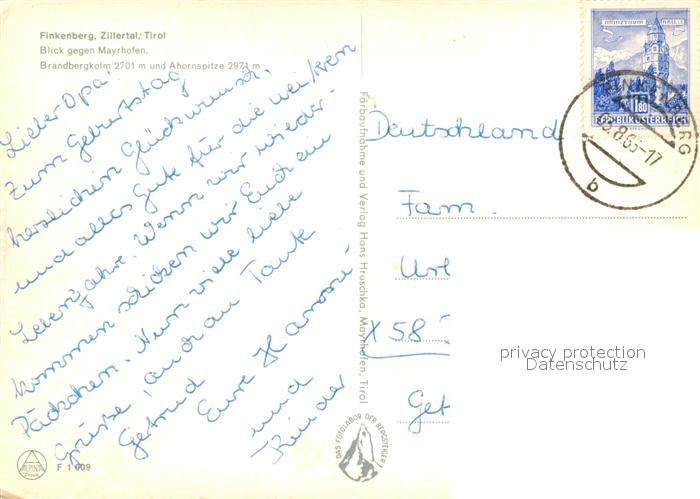 Finkenberg, Zillertal, Tirol
Blick gegen Mayrhofen,
Brandbergkolm 2701 m und Ahornspitze 2971 m
Lieber Opa!
Zum Geburtstag
herzlichen Glückwunsch,
und alles Gute für die weiteren
Lebensjahre. Wenn wir wieder-
kommen schicken wir Euch ein
Päckchen. Nun viele liebe
Grüße, auch an Tante
Getrud Eure Hanni
und
Kinder
ALPINA
F 1609
Farbaufnahme und Verlag Hans Hruschka, Mayrhofen, Tirol
DAS FOTOLABOR DER BERGSTEIGER
MÜNZTURM HALL I. T.
1.80
REPUBLIK ÖSTERREICH
FINKENBERG
8.65-17
b
Deutschland
Fam.
X 58
Get
privacy protection
Datenschutz